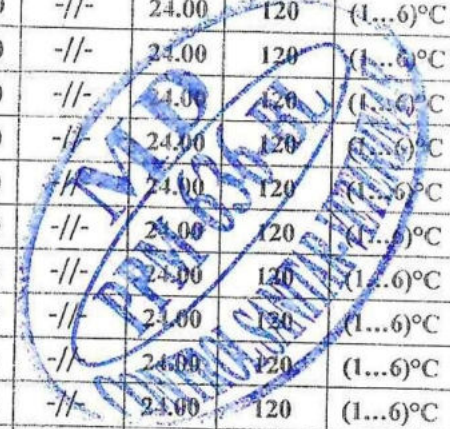 -//- 24.00 120 (1...6)°C
-//- 24.00 120 (1...6)°C
-//- 24.00 120 (1...6)°C
-//- 24.00 120 (1...6)°C
-//- 24.00 120 (1...6)°C
-//- 24.00 120 (1...6)°C
-//- 24.00 120 (1...6)°C
-//- 24.00 120 (1...6)°C
-//- 24.00 120 (1...6)°C
-//- 24.00 120 (1...6)°C
MD
PPM 636 BL
CONTROL SANITAR-VETERINAR